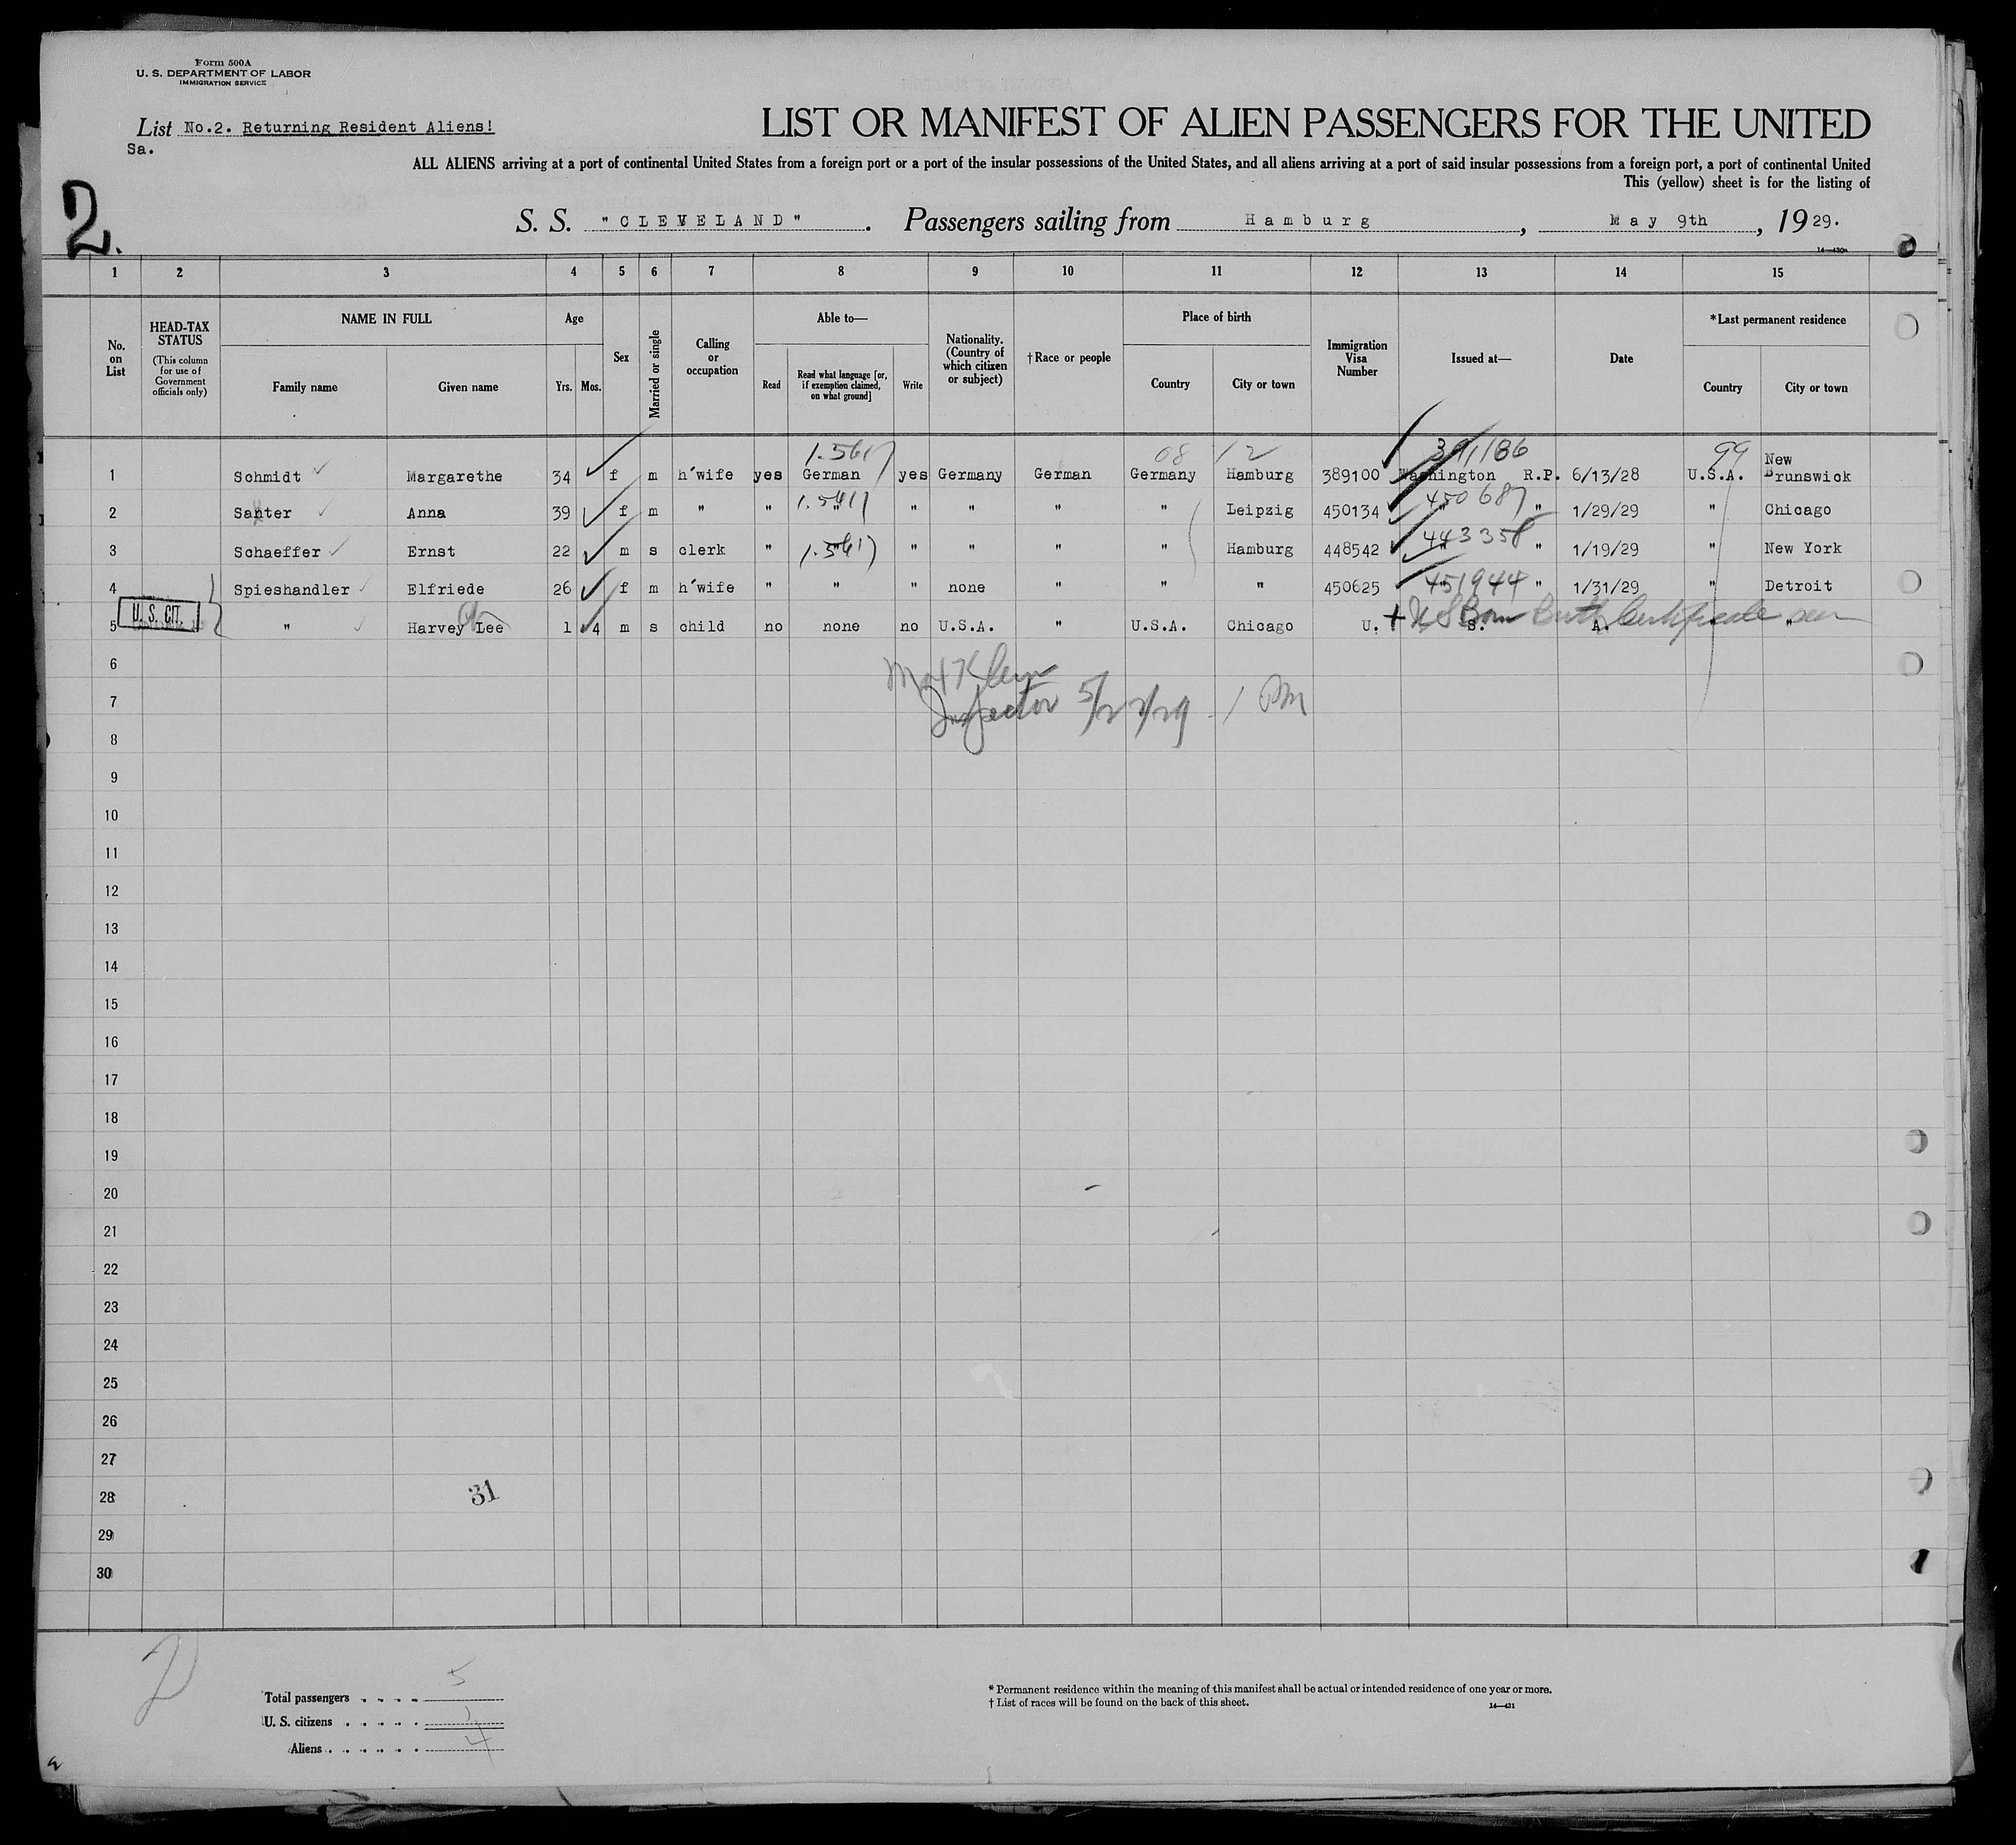 Form 500A
U. S. DEPARTMENT OF LABOR
IMMIGRATION SERVICE
List No.2. Returning Resident Aliens!
Sa.
LIST OR MANIFEST OF ALIEN PASSENGERS FOR THE UNITED
ALL ALIENS arriving at a port of continental United States from a foreign port or a port of the insular possessions of the United States, and all aliens arriving at a port of said insular possessions from a foreign port, a port of continental United
This (yellow) sheet is for the listing of
2.
S. S. "CLEVELAND". Passengers sailing from Hamburg, May 9th, 1929.
1 2 3 4 5 6 7 8 9 10 11 12 13 14 15
No. on List
HEAD-TAX STATUS
(This column for use of Government officials only)
NAME IN FULL
Family name Given name
Age
Yrs. Mos.
Sex
Married or single
Calling or occupation
Able to—
Read
Read what language [or, if exemption claimed, on what ground]
Write
Nationality. (Country of which citizen or subject)
†Race or people
Place of birth
Country City or town
Immigration Visa Number
Issued at—
Date
*Last permanent residence
Country City or town
08 12 391,186 99
1 Schmidt Margarethe 34 f m h'wife yes German yes Germany German Germany Hamburg 389100 Washington R.P. 6/13/28 U.S.A. New Brunswick
450687
2 Santer Anna 39 f m " " " " " " " Leipzig 450134 " " 1/29/29 " Chicago
443358
3 Schaeffer Ernst 22 m s clerk " " " " " " Hamburg 448542 " " 1/19/29 " New York
451944
4 Spieshandler Elfriede 26 f m h'wife " " " none " " " 450625 " " 1/31/29 " Detroit
U. S. CIT.
US Born Birth Certificate seen
5 " Harvey Lee 1 4 m s child no none no U.S.A. " U.S.A. Chicago U. S. A. " "
6
Max Klein
7
Inspector 5/22/29 1 PM
8
9
10
11
12
13
14
15
16
17
18
19
20
21
22
23
24
25
26
27
28
31
29
30
2
Total passengers . . . . 5
U. S. citizens . . . . . 1
Aliens . . . . . . 4
* Permanent residence within the meaning of this manifest shall be actual or intended residence of one year or more.
† List of races will be found on the back of this sheet.
14—431